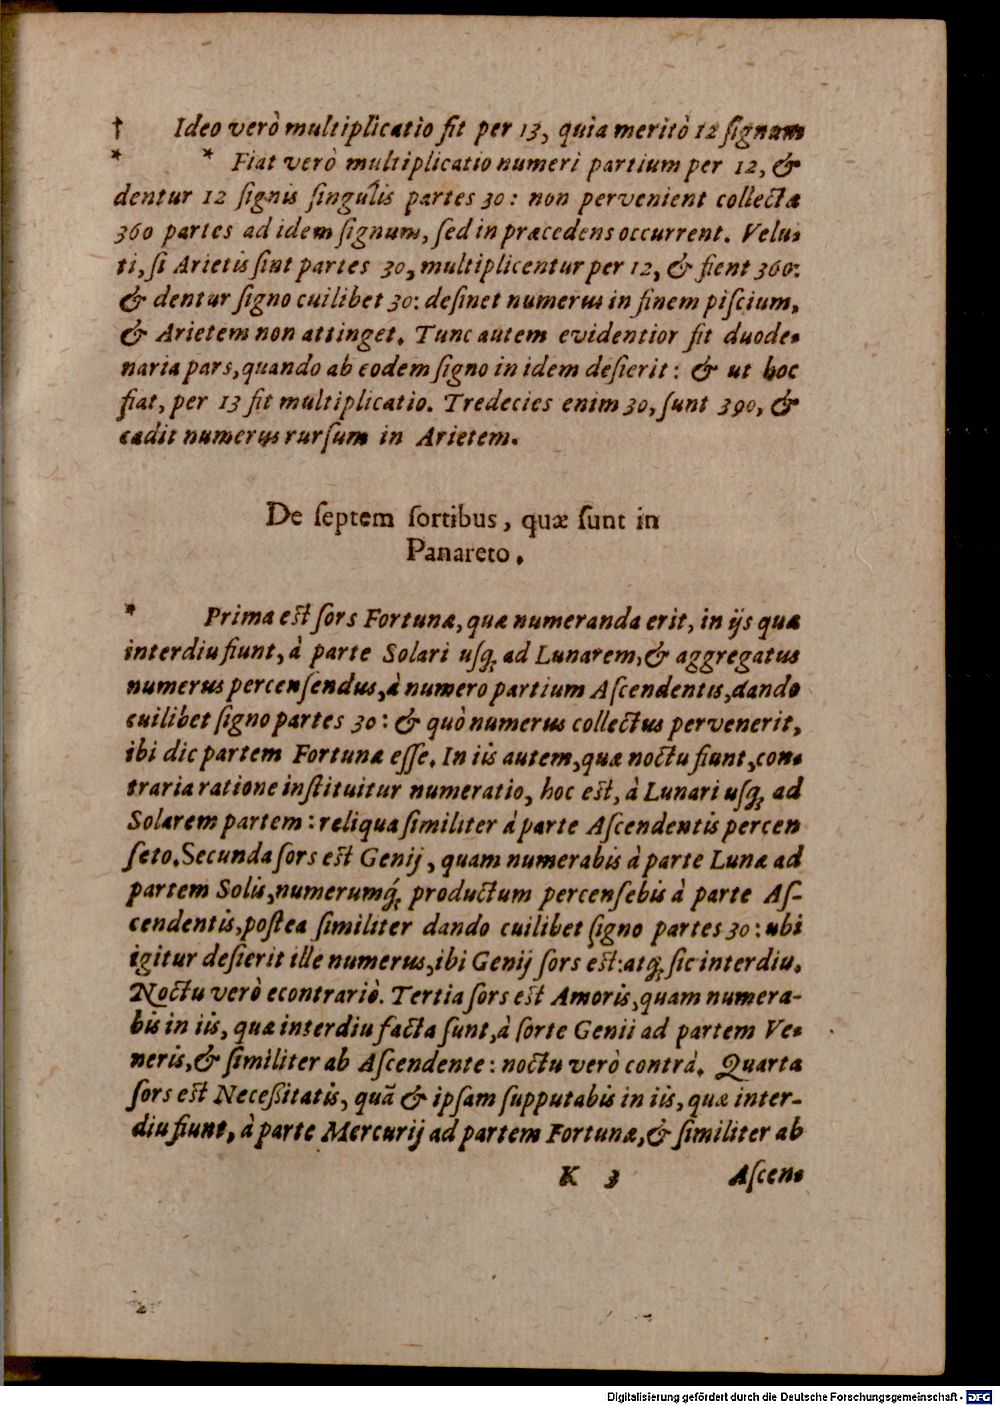 † Ideo verò multiplicatio fit per 13, quia meritò 12 ſignum
* * Fiat verò multiplicatio numeri partium per 12, &
dentur 12 ſignis ſingulis partes 30: non pervenient collectæ
360 partes ad idem ſignum, ſed in præcedens occurrent. Velu-
ti, ſi Arietis ſint partes 30, multiplicentur per 12, & fient 360:
& dentur ſigno cuilibet 30: deſinet numerus in finem piſcium,
& Arietem non attinget. Tunc autem evidentior fit duode-
naria pars, quando ab eodem ſigno in idem deſierit: & ut hoc
fiat, per 13 fit multiplicatio. Tredecies enim 30, ſunt 390, &
cadit numerus rurſum in Arietem.
De ſeptem ſortibus, quæ ſunt in
Panareto.
* Prima eſt ſors Fortunæ, quæ numeranda erit, in ijs quæ
interdiu fiunt, à parte Solari uſq; ad Lunarem, & aggregatus
numerus percenſendus, à numero partium Aſcendentis, dando
cuilibet ſigno partes 30: & quò numerus collectus pervenerit,
ibi dic partem Fortunæ eſſe. In iis autem, quæ noctu fiunt, con-
traria ratione inſtituitur numeratio, hoc eſt, à Lunari uſq; ad
Solarem partem: reliqua ſimiliter à parte Aſcendentis percen
ſeto. Secunda ſors eſt Genij, quam numerabis à parte Lunæ ad
partem Solis, numerumq́; productum percenſebis à parte Aſ-
cendentis, poſtea ſimiliter dando cuilibet ſigno partes 30: ubi
igitur deſierit ille numerus, ibi Genij ſors eſt: atq; ſic interdiu.
Noctu verò econtrariò. Tertia ſors eſt Amoris, quam numera-
bis in iis, quæ interdiu facta ſunt, à ſorte Genii ad partem Ve-
neris, & ſimiliter ab Aſcendente: noctu verò contrà. Quarta
ſors eſt Neceſſitatis, quã & ipſam ſupputabis in iis, quæ inter-
diu fiunt, à parte Mercurij ad partem Fortunæ, & ſimiliter ab
K 3 Aſcen-
Digitalisierung gefördert durch die Deutsche Forschungsgemeinschaft - DFG